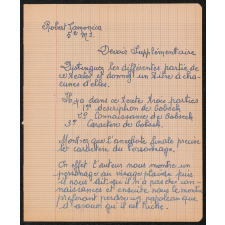 Robert
5e M1
Devoir Supplémentaire
Distinguez les différentes parties de
ce texte et donnez un titre à cha-
cune d'elles.
Il y a dans ce texte trois parties
1º description de Gobseck
2º Connaissance de Gobseck
3º Caractère de Gobseck.
Montrez que l'anecdote finale précise
le caractère du personnage.
En effet l'auteur nous montre un
personnage au visage
il nous dit qu'il n'a pas de con-
naissances et ensuite nous le montre
préférant perdre un napoléon que
d'avouer qu'il est riche.